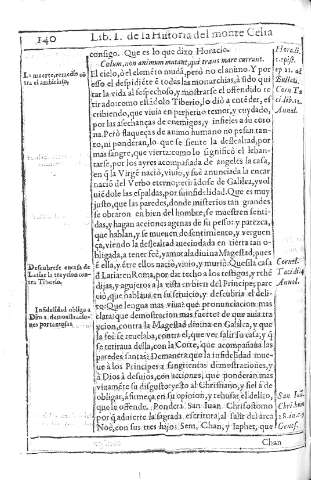 140
Lib. I. de la Historia del monte Celia
consigo. Que es lo que dixo Horacio.
Cœlum, non animum mutant, qui trans mare currunt.
El cielo, ò el elemēto mudà, pero no el animo. Y por
esso el despidiéte è todas las monarchias, a sido qui
tar la vida al sospechoso, y mostrarse el ofendido re
tirado: como estādolo Tiberio, lo diò a entēder, es
cribiendo, que viuia en perpetuo temor, y cuydado,
por las asechanças de enemigos, y infieles a su coro
na. Pero flaqueças de animo humano no pesan tan-
to, ni ponderan, lo que se siente la deslealtad, por
mas sangre, que vierta: como lo significò el leban-
tarse, por los ayres acompañada de angeles la casa,
en q̄ la Virgē naciò, viuio, y fue anunciada la encar
nacion del Verbo eterno; retirādose de Galilea, y vol
uiēdole las espaldas, por su infidelidad. Que es muy
justo, que las paredes, donde misterios tan grandes
se obraron en bien del hombre, se muestren senti-
das, y hagan acciones agenas de su pesso y pareça,
que hablan, y se mueuen de sentimiento, y verguen
ça, viendo la deslealtad auecindada en tierra tan o-
bligada, a tener fè, y amor a la diuina Magestad, pues
è ella, y ētre ellos naciò, viuiò, y muriò. Que si la casa
d Laciar en Roma, por dar techo a los testigos, y rehē
dijas, y agujeros a la vista en bien del Principe; pare
ciò, que hablaua en su seruicio, y descubria el deli-
to: Que lengua mas viua? què pronunciacion mas
clara? que demostracion mas fuerte? de que auia tra
ycion, contra la Magestad diuina en Galilea, y que
la fee se reuelaba, contra el, que ver salir su casa; y q̄
se retiraua della, con la Corte, que acompañaba las
paredes santas? Demanera que la infidelidad mue-
ue a los Principes a sangrientas demostraciones, y
à Dios à desuios, con acciones, que ponderan mas
viuamēte su disgusto: y esto al Christiano, y fiel à de
obligar, à fuerça en su opinion, y rehusar el delito,
que le ofende. Pondera San Iuan Chrisostomo
por q̄ aduierte la sagrada escritura, al salir del arca
Noè, con sus tres hijos Sem, Chan, y Iaphet, que
Chan
La muerte, remedio cō
tra el ambicioso.
Descubrese en casa de
Laciar la traycion con-
tra Tiberio.
Infidelidad obliga a
Dios a demostracio-
nes portentosas.
Horac. li.
1. epist.
ep. 11. ad
Bullati.
Corn. Ta
ci. lib. 12.
Annal.
Cornel.
Tacit. 4.
Annal.
San Iuā
Chrisost.
28. in c. 9
Genes.